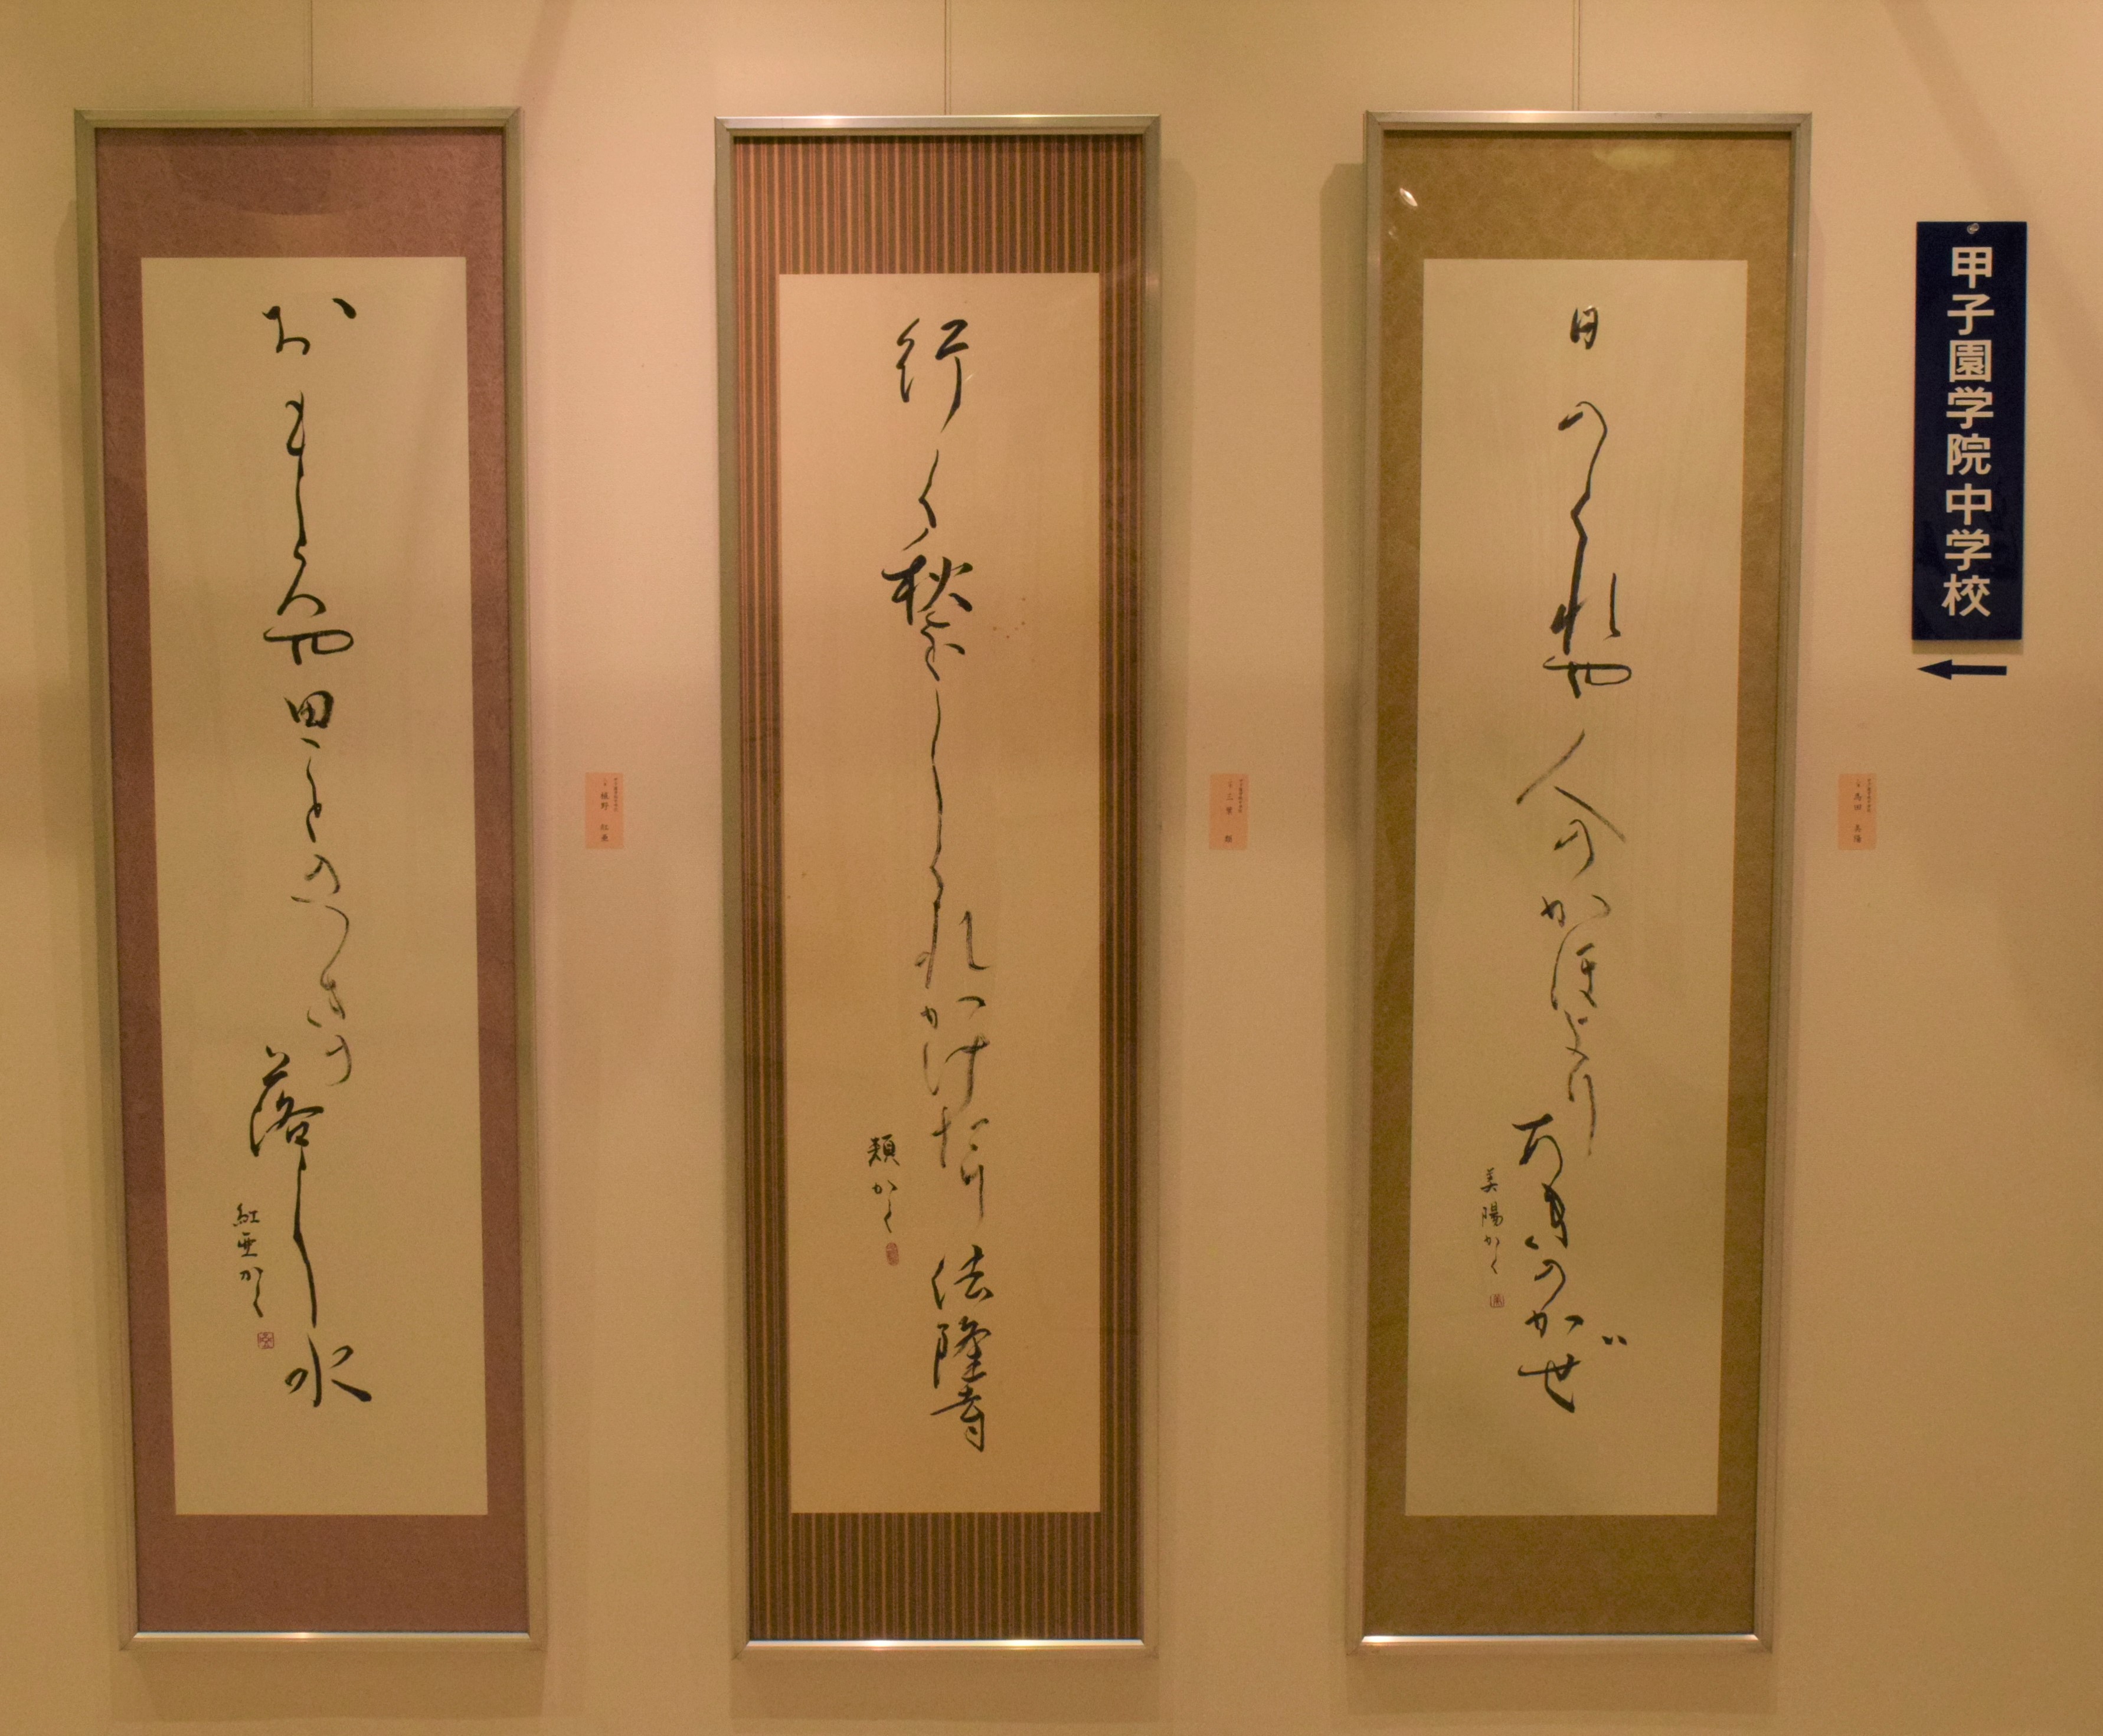 甲子園学院中学校
日のくれや人のかほより
あきのかぜ
美陽かく
行く秋をしくれかけたり法隆寺
類かく
おもしろや田ことのつきの
落し水
紅亜かく